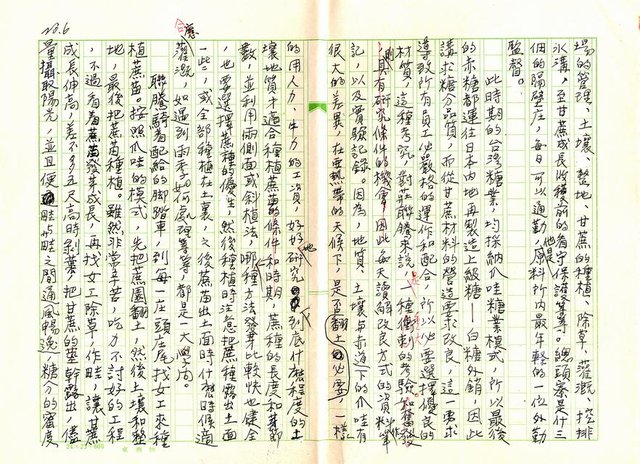 場的管理、土壤、整地、甘蔗的種植、除草、灌溉、挖排
水溝，至甘蔗成長收穫之前的看守保護等等。總頭寮是什三
佃的隔壁庄，每日可以通勤，他是原料所內最年輕的一位外勤
監督。
此時期的台灣糖業，均採納爪哇糖業模式，所以最後
的赤糖都運往日本內地再製造上級糖——白糖外銷，因此
講求糖分品質，而從甘蔗材料的營造要求改良，這一要求
導致所有員工他嚴格的運作和配合，所以他要選擇優良的
材質，這種考究，對壯聯騰來說，是一種衝刺的考驗和奮發
，具有研究條件的機會，因此每天讀解改良方式的資料筆
記，以及實驗記錄。因為，地質、土壤與赤道下的爪哇有
很大的差異，在亞熱帶的天候下，是否翻土的必要，一樣
的用人力、牛力的工資，好好地研究，到底什麼程度的土
壤地質才適合種植蔗苗的條件和時期，蔗種的長度和芽節
數，並利用兩側面或斜植法，哪種方法發芽比較快也健全
，也要選擇蔗種的優生，然後種植時注意把蔗種露出土面
一些，或全部種植在土壤，之後蔗苗出土面時什麼時候適
應灌溉，如遇到雨季如何處理等等，都是一大學問。
聯騰騎著配給的腳踏車，到每一庄頭庄尾找女工來種
植蔗苗。按照爪哇的模式，先把蔗園翻土，然後土壤和整
地，最後把蔗苗種植。雖然非常辛苦，吃力不討好的工程
，不過看着蔗苗發芽成長，再找女工除草，作畦，讓甘蔗
成長伸高，差不多五尺高時剝葉，把甘蔗的莖幹露出，儘
量攝取陽光，並且使畦與畦之間通風暢快，糖分的密度
NO.6